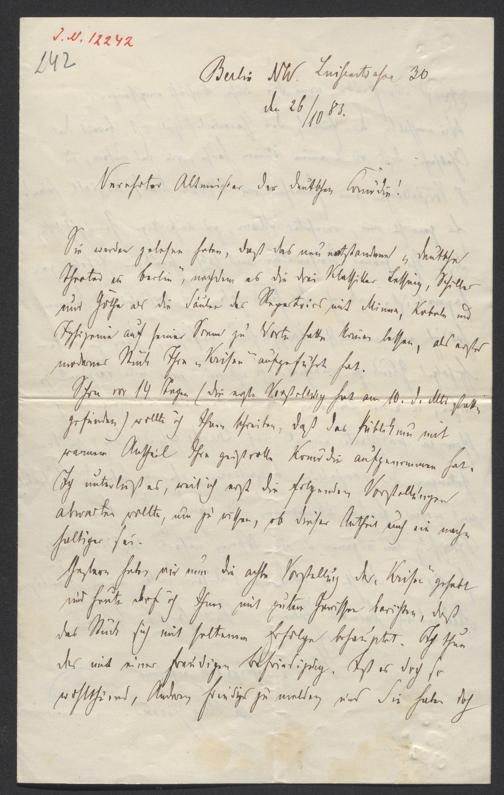 J.N. 12242
242
Berlin NW. Luisenstrasse 30
den 26/10 83.
Verehrter Altmeister der deutschen Comödie!
Sie werden gelesen haben, daß das neu entstandene „deutsche
Theater zu Berlin", nachdem es die drei Klassiker Lessing, Schiller
und Göthe als die Säulen des Repertoirs mit Minna, Kabale und
Iphigenie auf seiner Scene zu Worte hatte kommen lassen, als erstes
modernes Stück Ihre „Krisen" aufgeführt hat.
Schon vor 14 Tagen (die erste Vorstellung hat am 10. d. Mts. statt-
gefunden) wollte ich Ihnen schreiben, daß das Publikum mit
warmem Antheil Ihre geistvolle Komödie aufgenommen hat.
Ich unterließ es, weil ich erst die folgenden Vorstellungen
abwarten wollte, um zu wissen, ob dieser Antheil auch ein nach-
haltiger sei.
Gestern haben wir nun die achte Vorstellung der „Krisen" gehabt
und heute darf ich Ihnen mit gutem Gewissen berichten, daß
das Stück sich mit seltenem Erfolge behauptet. Ich thue
das mit einer freudigen Befriedigung. Ist es doch so
wohlthuend, Andern Freudiges zu melden und Sie haben doch